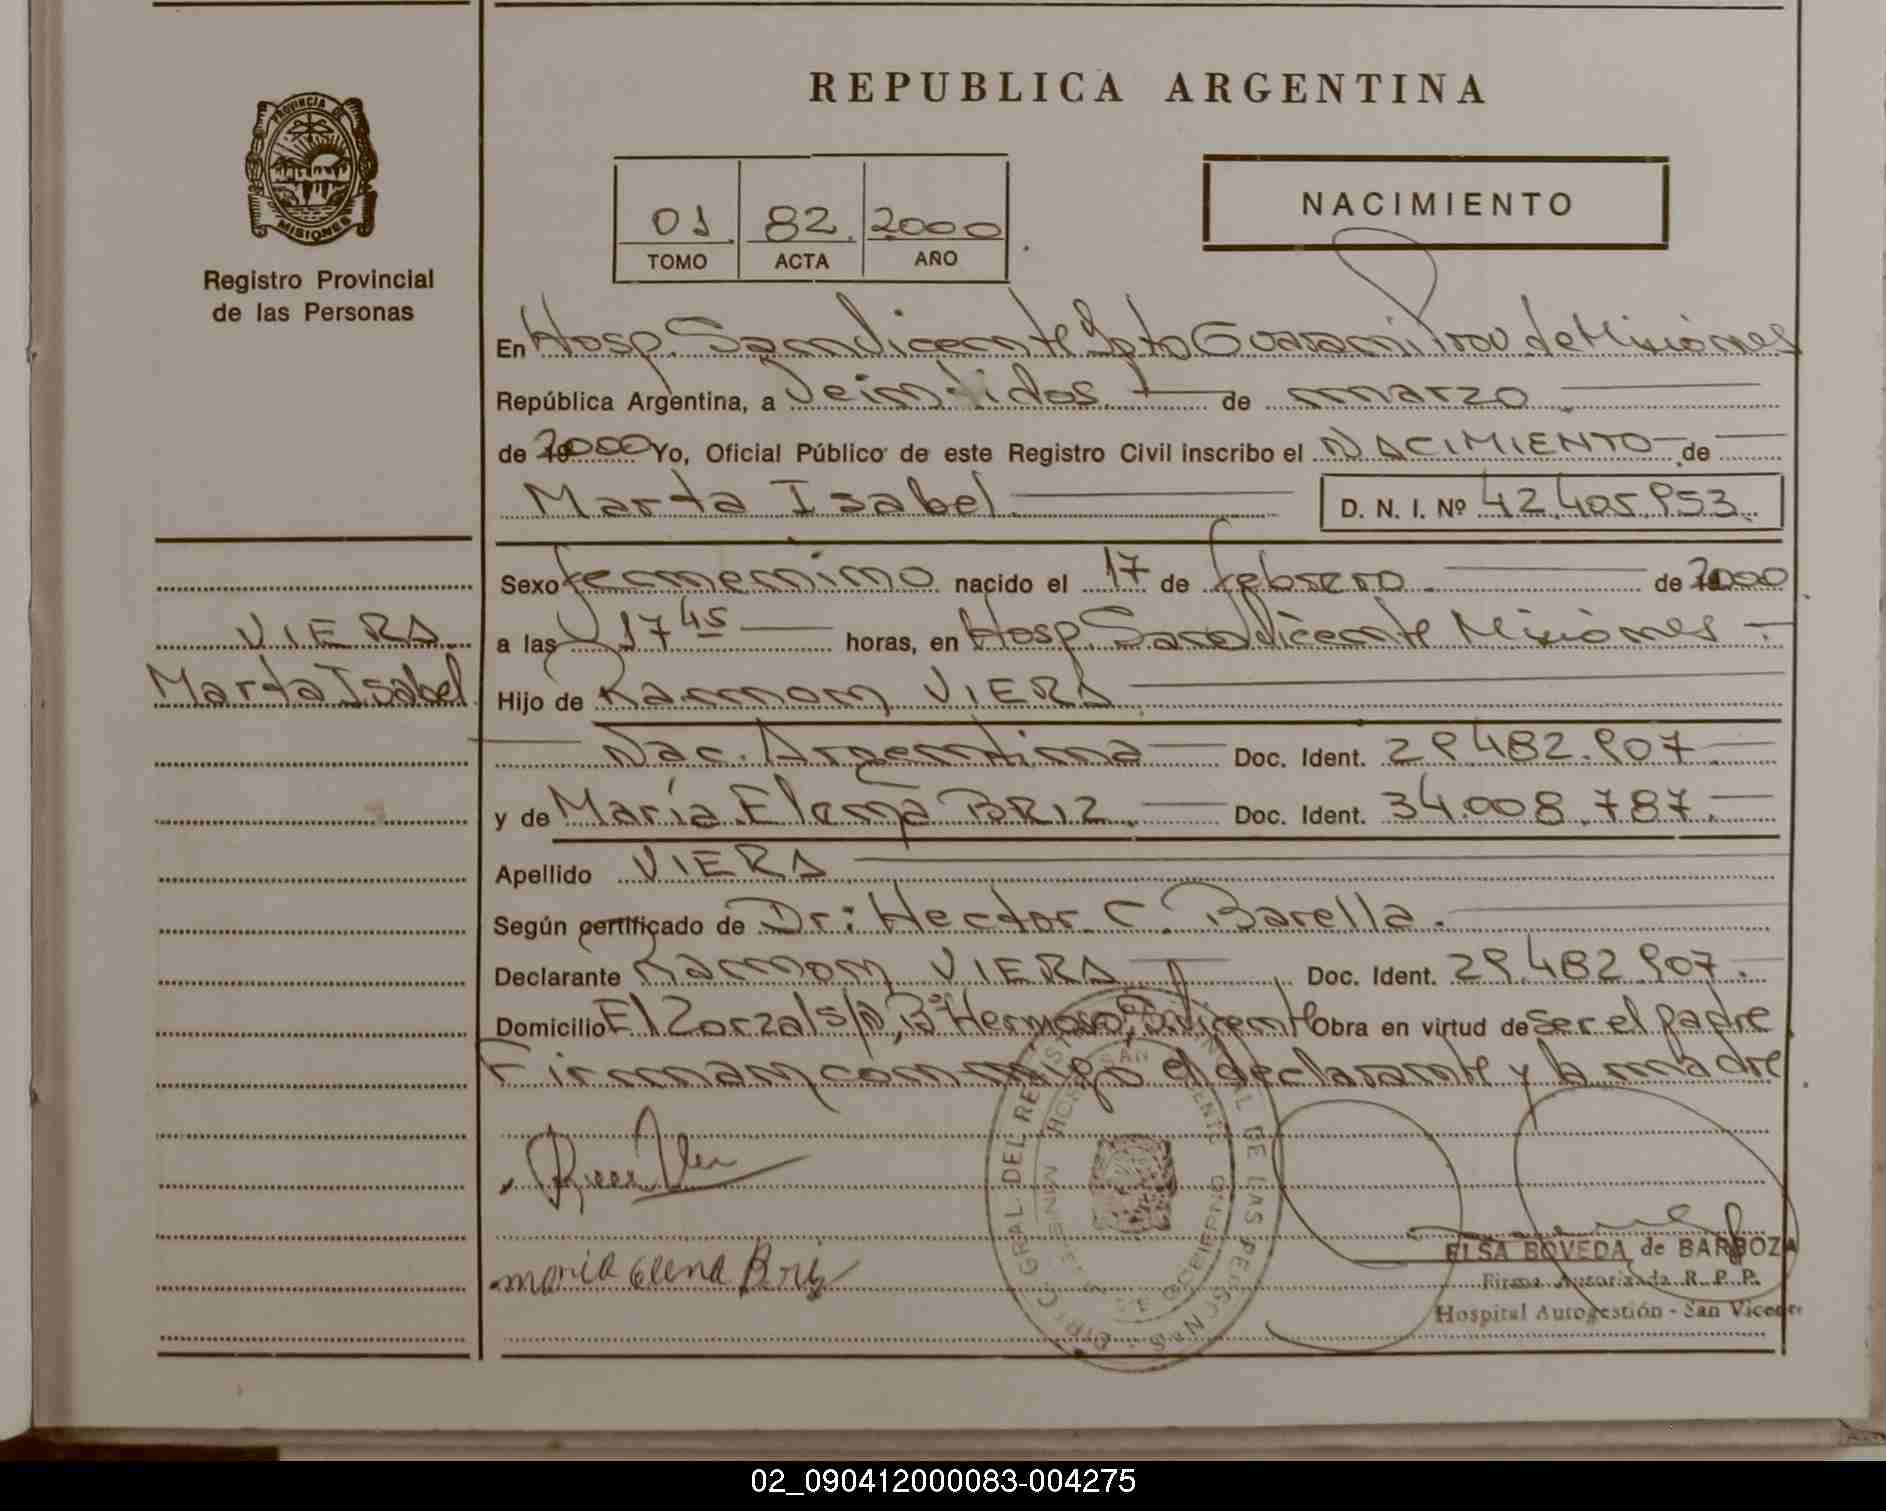 REPUBLICA ARGENTINA
PROVINCIA DE
MISIONES
Registro Provincial
de las Personas
01 82. 2000
TOMO ACTA AÑO
NACIMIENTO
En Hosp. San Vicente Dpto Guarani Prov de Misiones
República Argentina, a Veintidos de marzo
de 2000 Yo, Oficial Público de este Registro Civil inscribo el NACIMIENTO de
Marta Isabel D. N. I. Nº 42.405.953.
Sexo femenino nacido el 17 de febrero de 2000
a las 17 45 horas, en Hosp. San Vicente Misiones
Hijo de Ramon VIERA
Nac. Argentina Doc. Ident. 29.482.907
y de María Elena BRIZ. Doc. Ident. 34.008.787.
Apellido VIERA
Según certificado de Dr: Hector C. Barella.
Declarante Ramon VIERA Doc. Ident. 29.482.907.
Domicilio El Zorzal s/n, Bº Hermoso, S. Vicente Obra en virtud de ser el padre
Firman conmigo el declarante y la madre
VIERA
Marta Isabel
maria elena Briz
DIREC. GRAL. DEL REGISTRO PROVINCIAL DE LAS PERSONAS
ELSA BOVEDA de BARBOZA
Firma Autorizada R. P. P.
Hospital Autogestión - San Vicente
02_090412000083-004275